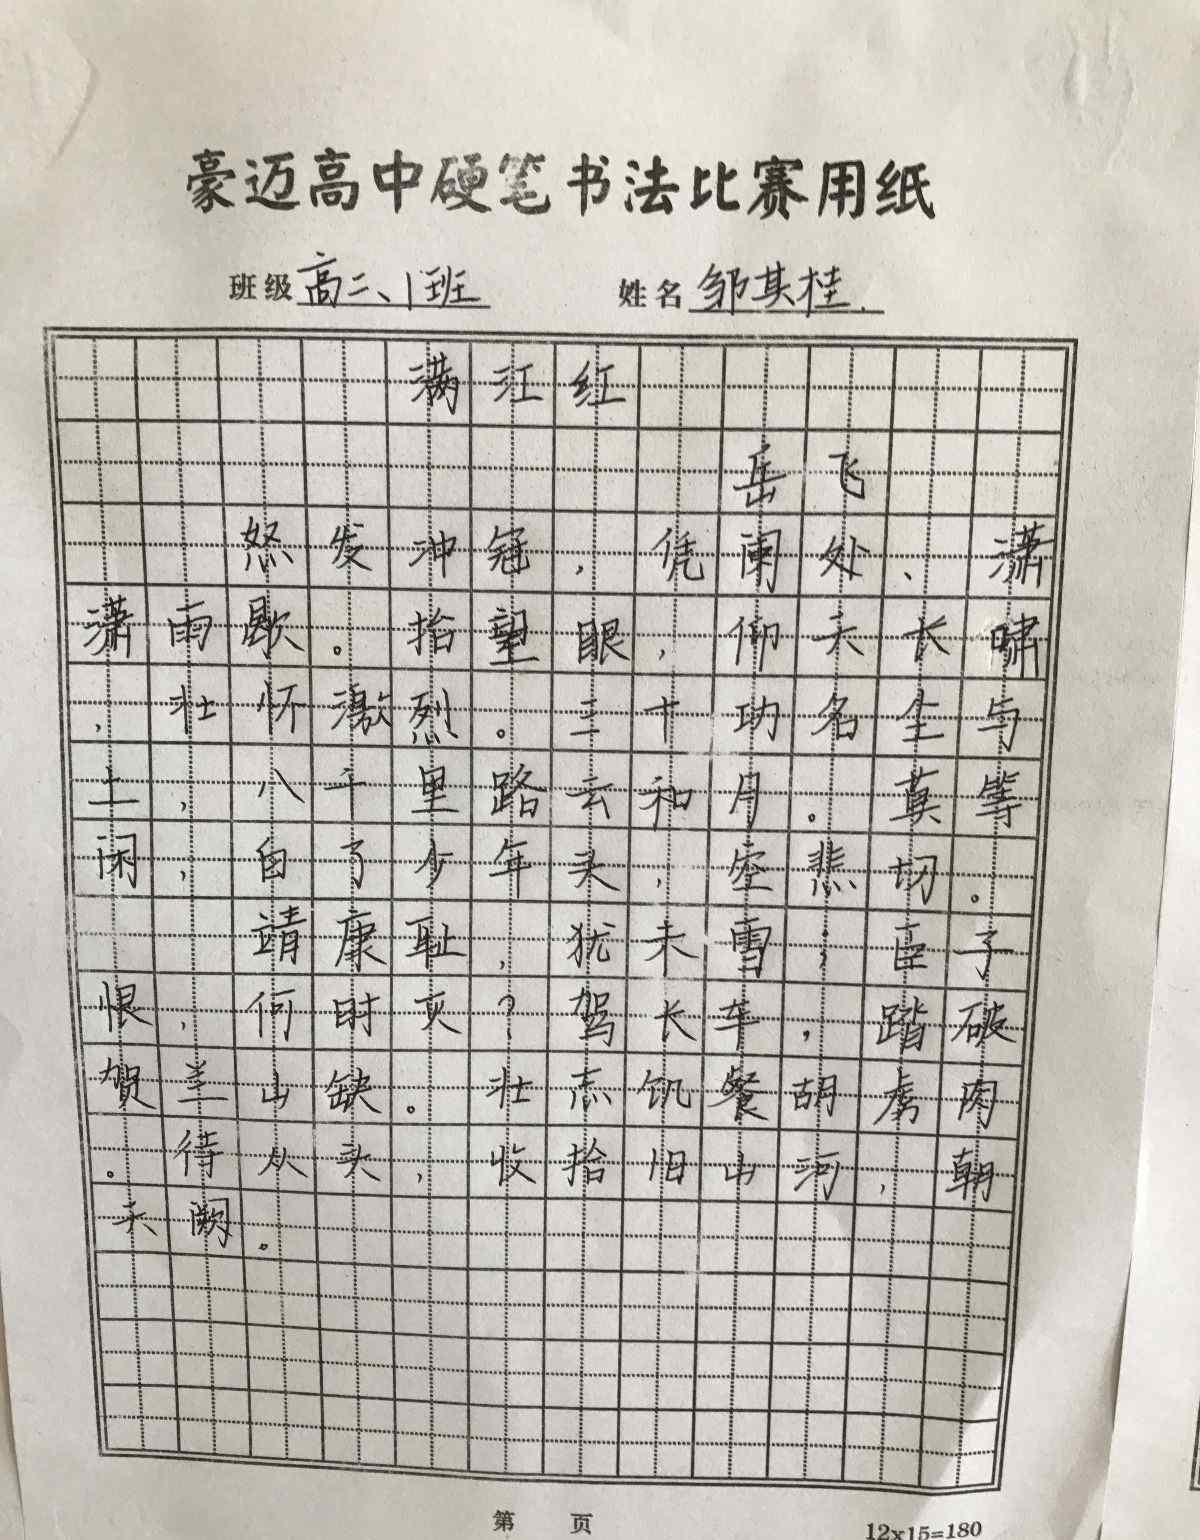 豪迈高中硬笔书法比赛用纸
班级高三、1班 姓名邹其桂.
满江红
岳飞
怒发冲冠,凭阑处、潇
潇雨歇。抬望眼,仰天长啸
,壮怀激烈。三十功名尘与
土,八千里路云和月。莫等
闲,白了少年头,空悲切。
靖康耻,犹未雪;臣子
恨,何时灭?驾长车,踏破
贺兰山缺。壮志饥餐胡虏肉
。待从头,收拾旧山河,朝
天阙。
第 页
12x15=180